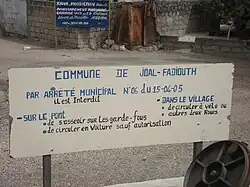 COMMUNE DE JOAL-FADIOUTH
PAR ARRETÉ MUNICIPAL N°06 du 15-06-05
il est Interdit
-SUR LE PONT
• de s'asseoir sur les garde-fous
• de circuler en Voiture sauf autorisation
• DANS LE VILLAGE
• de circuler à vélo ou
autres deux Roues